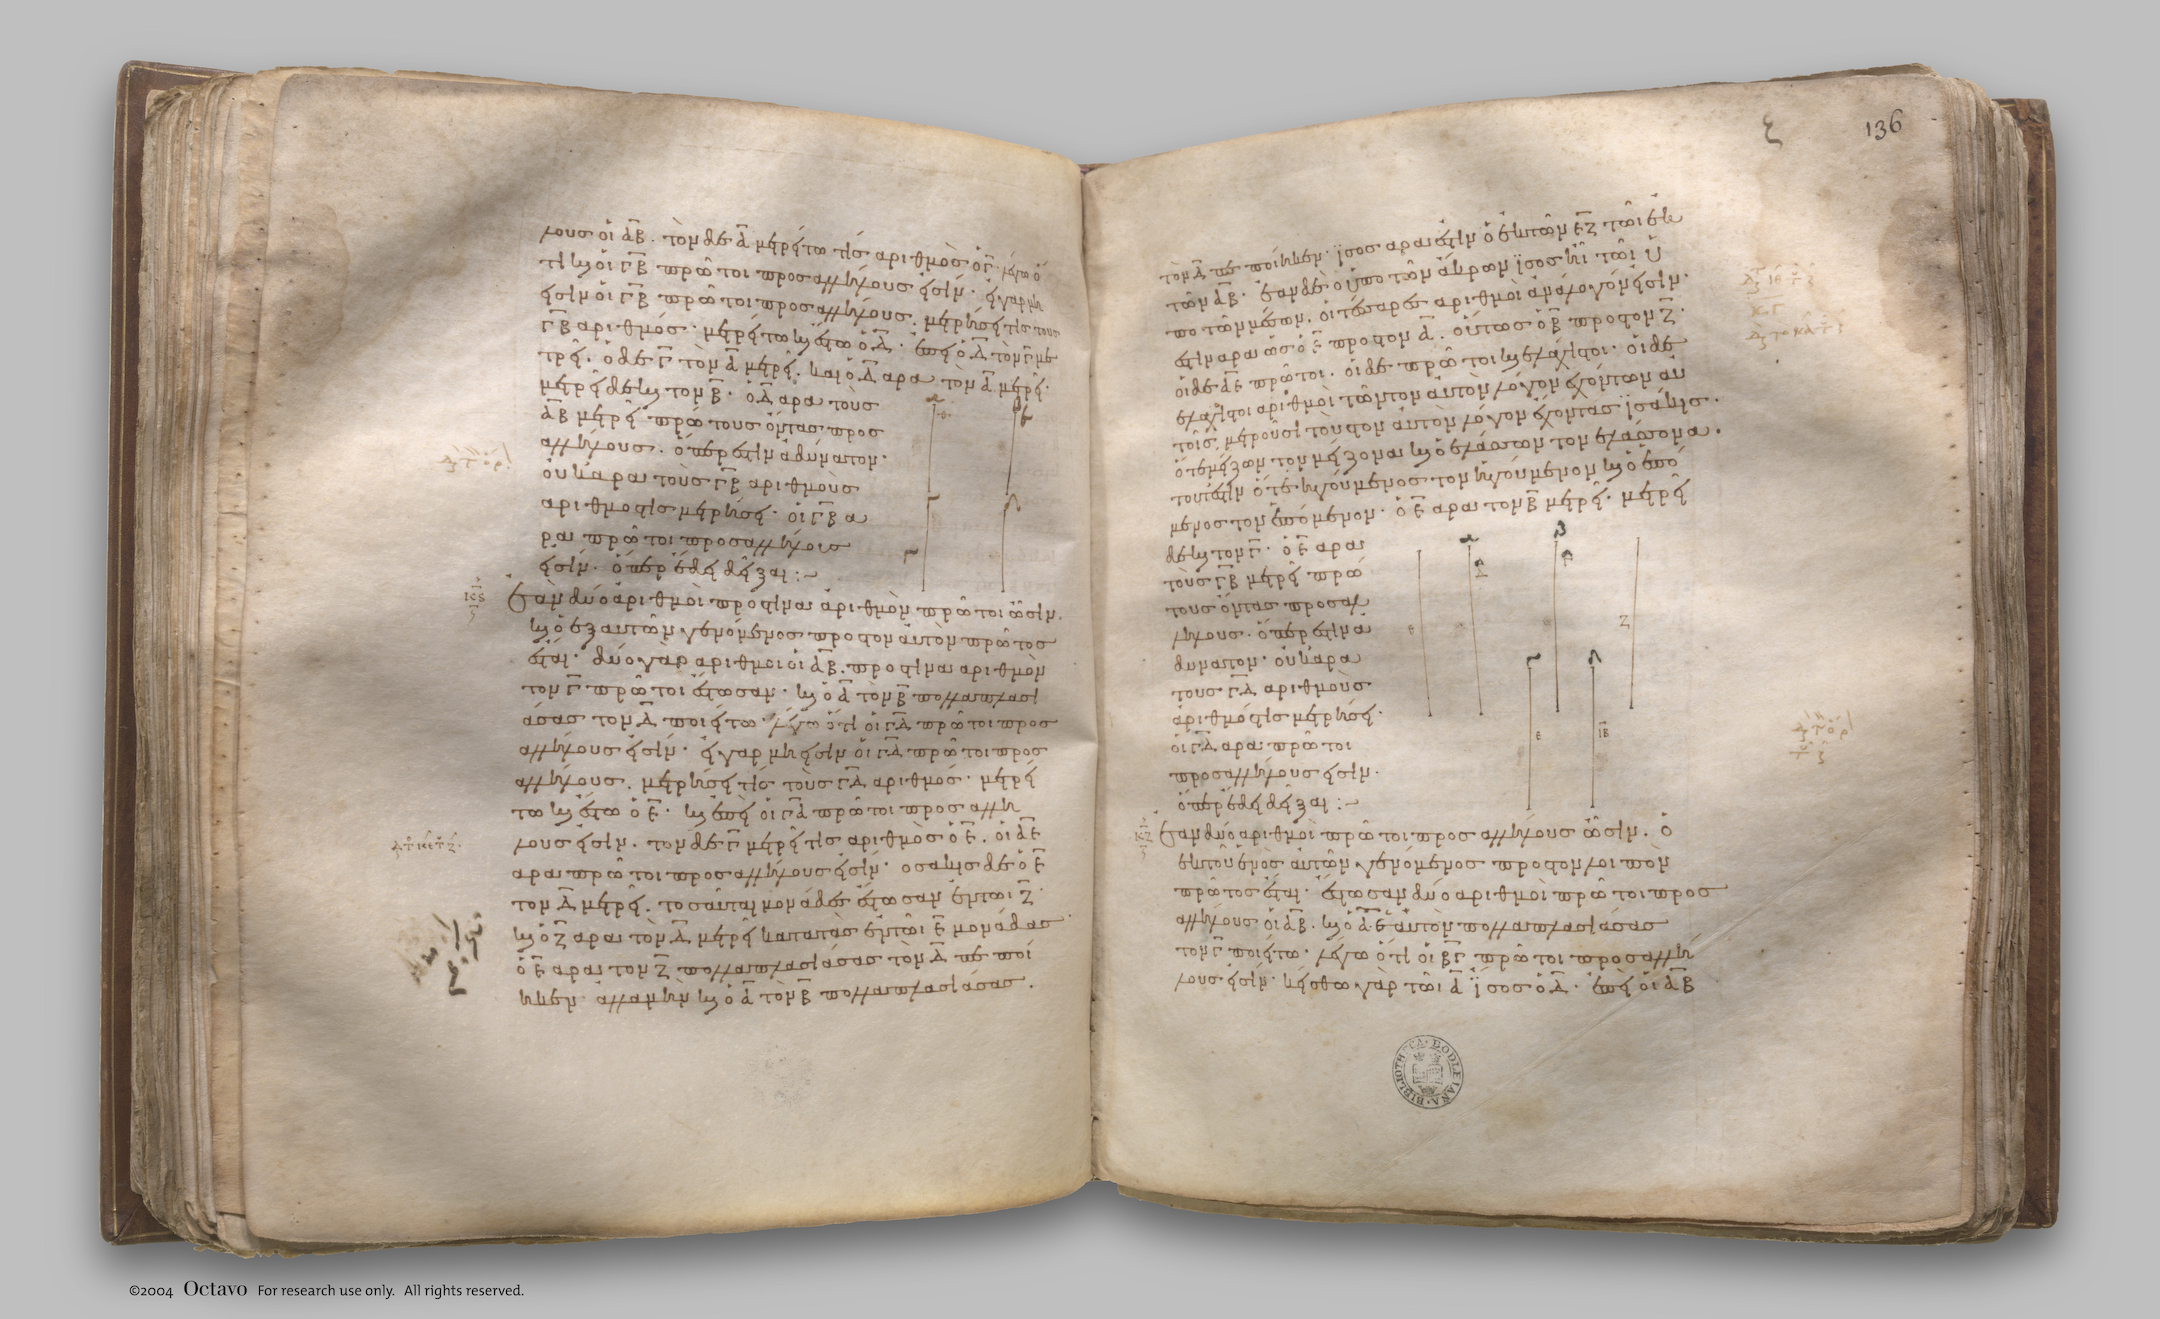 λους οἱ Α̅Β̅. τὸν δὲ Α̅ μετρείτω τὶς ἀριθμὸς ὁ Γ̅. λέγω ὅ
τι καὶ οἱ Γ̅Β̅ πρῶτοι προς ἀλλήλους εἰσίν. εἰ γὰρ μή
εἰσιν οἱ Γ̅Β̅ πρῶτοι προς ἀλλήλους. μετρήσει τὶς τοὺς
Γ̅Β̅ ἀριθμός. μετρείτω καὶ ἔστω ὁ Δ̅. ἐπεὶ ὁ Δ̅ τὸν Γ̅ με
τρεῖ. ὁ δὲ Γ̅ τὸν Α̅ μετρεῖ. καὶ ὁ Δ̅ ἄρα τὸν Α̅ μετρεῖ.
μετρεῖ δὲ καὶ τὸν Β̅. ὁ Δ̅ ἄρα τοὺς
Α̅Β̅ μετρεῖ πρώτους ὄντας προς
ἀλλήλους. ὅπερ ἐστὶν ἀδύνατον.
οὐκ ἄρα τοὺς Γ̅Β̅ ἀριθμοὺς
ἀριθμός τις μετρήσει. οἱ Γ̅Β̅ ἄ
ρα πρῶτοι προς ἀλλήλους
εἰσίν. ὅπερ ἔδει δεῖξαι :~
Ἐὰν δύο ἀριθμοὶ πρός τινα ἀριθμὸν πρῶτοι ὦσιν.
καὶ ὁ ἐξ αὐτῶν γενόμενος προς τον αὐτὸν πρῶτος
ἔσται. δύο γὰρ ἀριθμοι οἱ Α̅Β̅. πρός τινα ἀριθμὸν
τον Γ̅ πρῶτοι ἔστωσαν. καὶ ὁ Α̅ τὸν Β̅ πολλαπλασι
άσας τον Δ̅ ποιείτω. λέγω ὅτι οἱ Γ̅Δ̅ πρῶτοι προς
ἀλλήλους εἰσίν. εἰ γαρ μή εἰσιν οἱ Γ̅Δ̅ πρῶτοι προς
ἀλλήλους. μετρήσει τὶς τοὺς Γ̅Δ̅ ἀριθμός. μετρεί
τω καὶ ἔστω ὁ Ε̅. καὶ ἐπεὶ οἱ Γ̅Α̅ πρῶτοι προς ἀλλή
λους εἰσίν. τον δὲ Γ̅ μετρεῖ τὶς ἀριθμὸς ὁ Ε̅. οἱ Α̅Ε̅
ἄρα πρῶτοι προς ἀλλήλους εἰσίν. οσάκις δὲ ὁ Ε̅
τον Δ̅ μετρεῖ. τοσαῦται μονάδες ἔστωσαν ἐν τωι Ζ̅.
καὶ ὁ Ζ̅ ἄρα τὸν Δ̅ μετρεῖ κατα τὰς ἐν τῶι Ε̅ μονάδας
ὁ Ε̅ ἄρα τον Ζ̅ πολλαπλασιάσας τὸν Δ̅ πε ποί
ηκεν. ἀλλα μὴν καὶ ὁ Α̅ τὸν Β̅ πολλαπλασιάσας.
136
τὸν Δ̅ πε ποίηκεν. ἴσος ἄρα ἐστὶν ὁ ἐκ τῶν Ε̅Ζ̅ τῶι ἐκ
τῶν Α̅Β̅. ἐὰν δὲ ὁ ὑπο τῶν ἄκρων ἴσος ἦι τῶι ὑ
πο τῶν μέσων. οἱ τέσσαρες ἀριθμοὶ ἀνάλογόν εἰσιν.
ἔστιν ἄρα ὡς ὁ Ε̅ προς τον Α̅. οὕτως ὁ Β̅ προς τον Ζ̅.
οἱ δὲ Α̅Ε̅ πρῶτοι. οἱ δὲ πρῶτοι καὶ ἐλάχιστοι. οἱ δὲ
ἐλάχιστοι ἀριθμοὶ τῶν τον αὐτὸν λόγον ἐχόντων αὐ
τοῖς. μετροῦσι τοὺς τον αὐτὸν λόγον ἔχοντας ἰσάκις.
ὅ τε μείζων τον μείζονα καὶ ὁ ἐλάσσων τον ἐλάσσονα.
τουτέστιν ὅ τε ἡγούμενος τον ἡγούμενον καὶ ὁ ἑπό
μενος τον ἑπόμενον. ὁ Ε̅ ἄρα τον Β̅ μετρεῖ. μετρεῖ
δὲ καὶ τον Γ̅. ὁ Ε̅ ἄρα
τοὺς Γ̅Β̅ μετρεῖ πρώ
τους ὄντας προς ἀλ
λήλους. ὅπερ ἐστὶν ἀ
δύνατον. οὐκ ἄρα
τους Γ̅Δ̅ ἀριθμοὺς
ἀριθμός τις μετρήσει.
οἱ Γ̅Δ̅ ἄρα πρῶτοι
προς ἀλλήλους εἰσίν.
ὅπερ ἔδει δεῖξαι :~
Ἐὰν δύο ἀριθμοὶ πρῶτοι προς ἀλλήλους ὦσιν. ὁ
ἐκ τοῦ ἑνὸς αὐτῶν γενόμενος προς τον λοι πὸν
πρῶτος ἔσται. ἔστωσαν δύο ἀριθμοὶ πρῶτοι προς
ἀλλήλους οἱ Α̅Β̅. καὶ ὁ Α̅ ἑαυτὸν πολλαπλασιάσας
τον Γ̅ ποιείτω. λέγω ὅτι οἱ Β̅Γ̅ πρῶτοι προς ἀλλή
λους εἰσίν. κείσθω γὰρ τῶι Α̅ ἴσος ὁ Δ̅. ἐπεὶ οἱ Α̅Β̅
BIBLIOTHECA BODLEIANA
©2004 Octavo For research use only. All rights reserved.